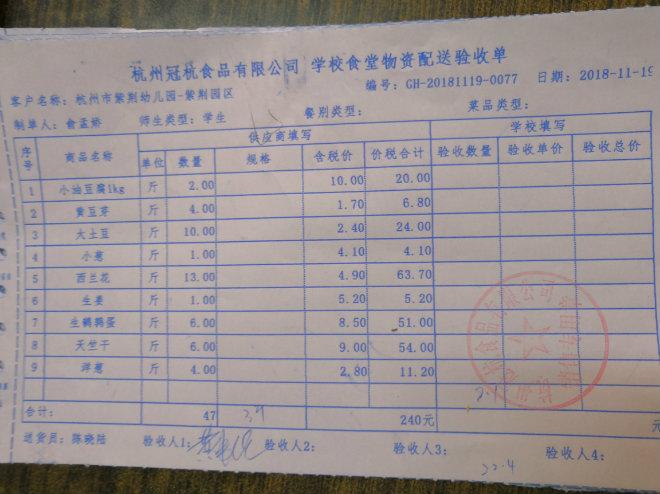 杭州冠杭食品有限公司 学校食堂物资配送验收单
编号: GH-20181119-0077 日期: 2018-11-19
客户名称: 杭州市紫荆幼儿园-紫荆园区
制单人: 俞孟娇 师生类型: 学生 餐别类型: 菜品类型:
供应商填写 学校填写
序号 商品名称 单位 数量 规格 含税价 价税合计 验收数量 验收单价 验收总价
1 小油豆腐1kg 斤 2.00 10.00 20.00
2 黄豆芽 斤 4.00 1.70 6.80
3 大土豆 斤 10.00 2.40 24.00
4 小葱 斤 1.00 4.10 4.10
5 西兰花 斤 13.00 4.90 63.70
6 生姜 斤 1.00 5.20 5.20
7 生鹌鹑蛋 斤 6.00 8.50 51.00
8 天竺干 斤 6.00 9.00 54.00
9 洋葱 斤 4.00 2.80 11.20
合计: 47 240元 元
送货员: 陈晓陆 验收人1: 验收人2: 验收人3: 验收人4: